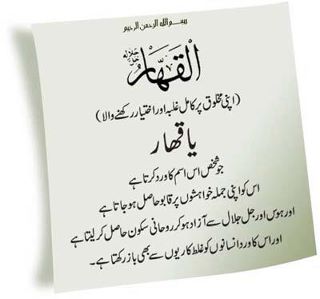 بسم الله الرحمن الرحيم
القهار جل جلاله
(اپنی مخلوق پر کامل غلبہ اور اختیار رکھنے والا)
یا قهار
جو شخص اس اسم کا ورد کرتا ہے
اس کو اپنی جملہ خواہشوں پر قابو حاصل ہو جاتا ہے
اور ہوس اور جل جلال سے آزاد ہو کر روحانی سکون حاصل کر لیتا ہے
اور اس کا ورد انسانوں کو غلط کاریوں سے بھی باز رکھتا ہے۔